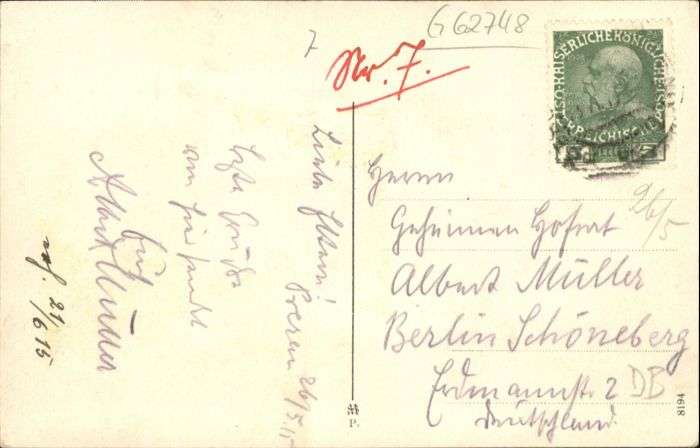 G 62748
7
Nr. 7.
KAISERLICHE KÖNIGLICHE
ÖSTERREICHISCHE
5
Liebe Eltern!
26/5.15
Letzte Grüße
von hier sendet
Euch
Albert Müller
21/6 15
Herrn
Geheimen Hofrat
Albert Müller
Berlin Schöneberg
Erdmannstr. 2
Deutschland.
26/5
DB
P.
8194